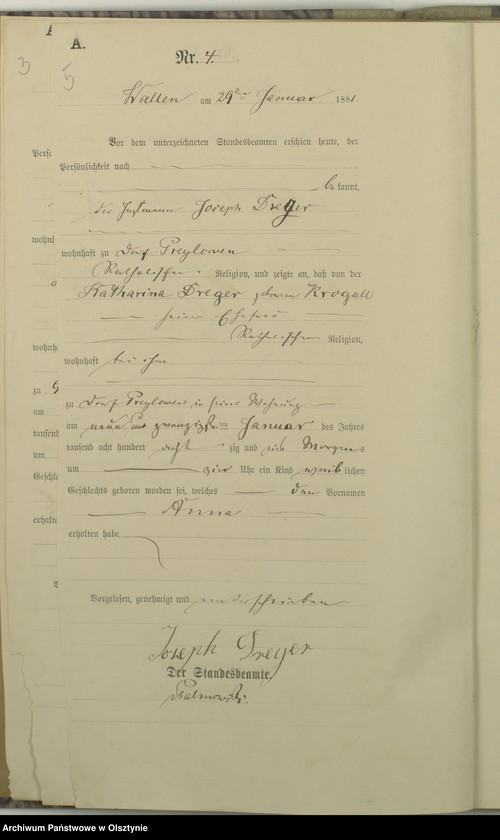 A.
A.
3
5
Nr. 4.
Wallen am 29ten Januar 1881.
Vor dem unterzeichneten Standesbeamten erschien heute, der
Persönlichkeit nach
bekannt,
der Instmann Joseph Dreger
wohnhaft zu Dorf Preylowen
Katholischer Religion, und zeigte an, daß von der
Katharina Dreger geboren Krogull
seiner Ehefrau
Katholischer Religion,
wohnhaft bei ihm
zu Dorf Preylowen in seiner Wohnung
am neun und zwanzigsten Januar des Jahres
tausend acht hundert acht zig und eins Morgens
um vier Uhr ein Kind weiblichen
Geschlechts geboren worden sei, welches den Vornamen
Anna
erhalten habe.
Vorgelesen, genehmigt und unterschrieben
Joseph Dreger
Der Standesbeamte.
Archiwum Państwowe w Olsztynie